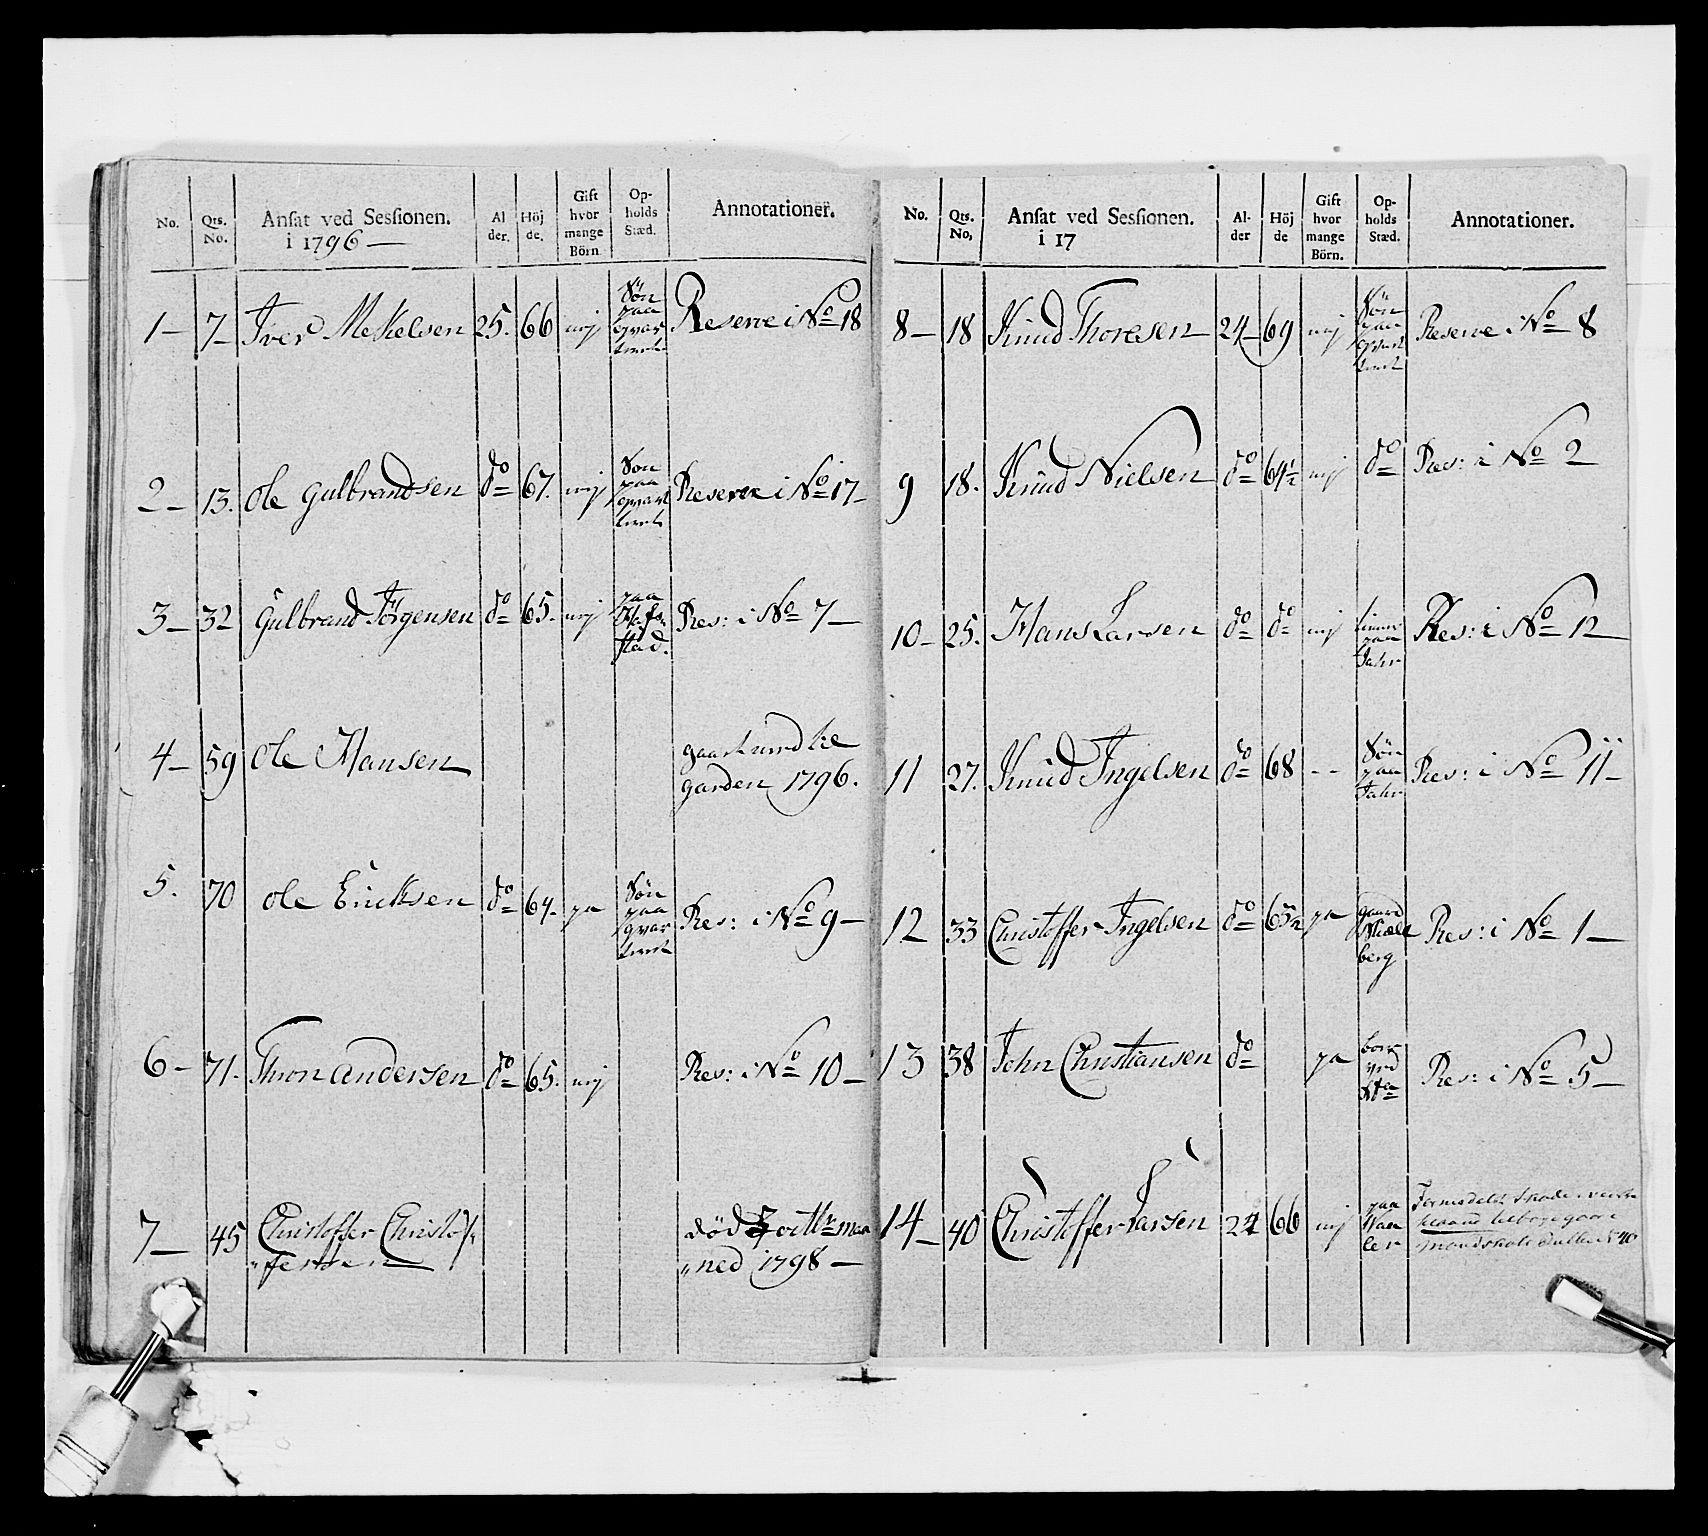 No. Qts. No. Ansat ved Sessionen. i 1796 — Al der. Höj de. Gift hvor mange Börn Op- holds Stæd. Annotationer.
1 — 7 — Iver Mekelsen 25. 66 nej Sön paa qvar teret Reserve i No 18
2 — 13. Ole Gulbrandsen do 67. nej Sön paa qvar teret Reserve i No 17 —
3 — 32 Gulbrand Jörgensen do 65. nej paa Res: i No 7 —
4 — 59 Ole Hansen garden 1796.
5. 70 Ole Ericksen do 64. ja Sön paa qvar teret Res: i No 9 —
6 — 71. Thron Andersen do 65. nej Res: i No 10 —
7 — 45 Christoffer Christof„
„fersen
död maa
„ned 1798 —
No. Qts. No, Ansat ved Sessionen. i 17 Al- der Höj de Gift hvor mange Börn. Op- holds Stæd. Annotationer.
8 — 18 Knud Thoresen 24 — 69 nej Sön paa qvar teret Reserve i No 8
9 18. Knud Nielsen do 64½ nej do Res: i No 2
10 — 25. Hans Larsen do do nej paa Res: i No 12
11 27. Knud Ingelsen do 68 - - Sön paa Res: i No 11 —
12 33 Christoffer Ingelsen do ja berg Res: i No 1 —
13 38 John Christiansen do ja Res: i No 5 —
14 — 40 Christoffer Larsen 24 66 nej paa